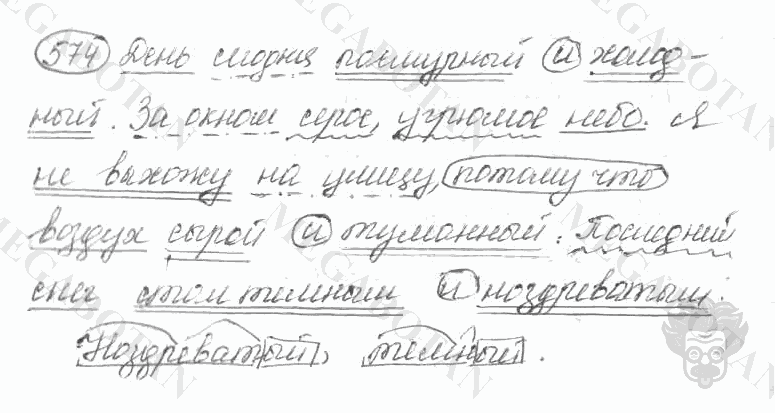 574 День сегодня пасмурный и холод-
ный. За окном серое, угрюмое небо. Я
не выхожу на улицу, потому что
воздух сырой и туманный. Последний
снег стал темным и ноздреватым.
Ноздреватый, темный.
MEGABOTAN